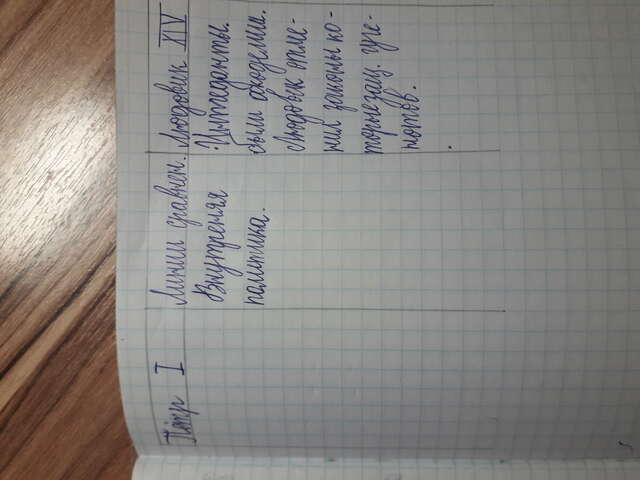 Пётр I
Линии сравнен.
Внутреняя
политика.
Людовик XIV
·Интеданты.
были академии.
Людовик отме-
нил законы ко-
торыезащ. гуге-
нотов.
.